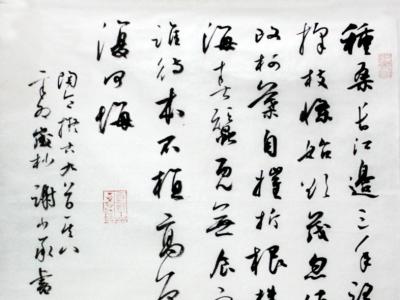 種桑长江邊三年望
採枝條始欲茂忽值
改柯葉自摧折根株
海春蠶既無食寒
誰待本不植高原
復何悔
陶令擬古九首其八
歲杪謝小承書